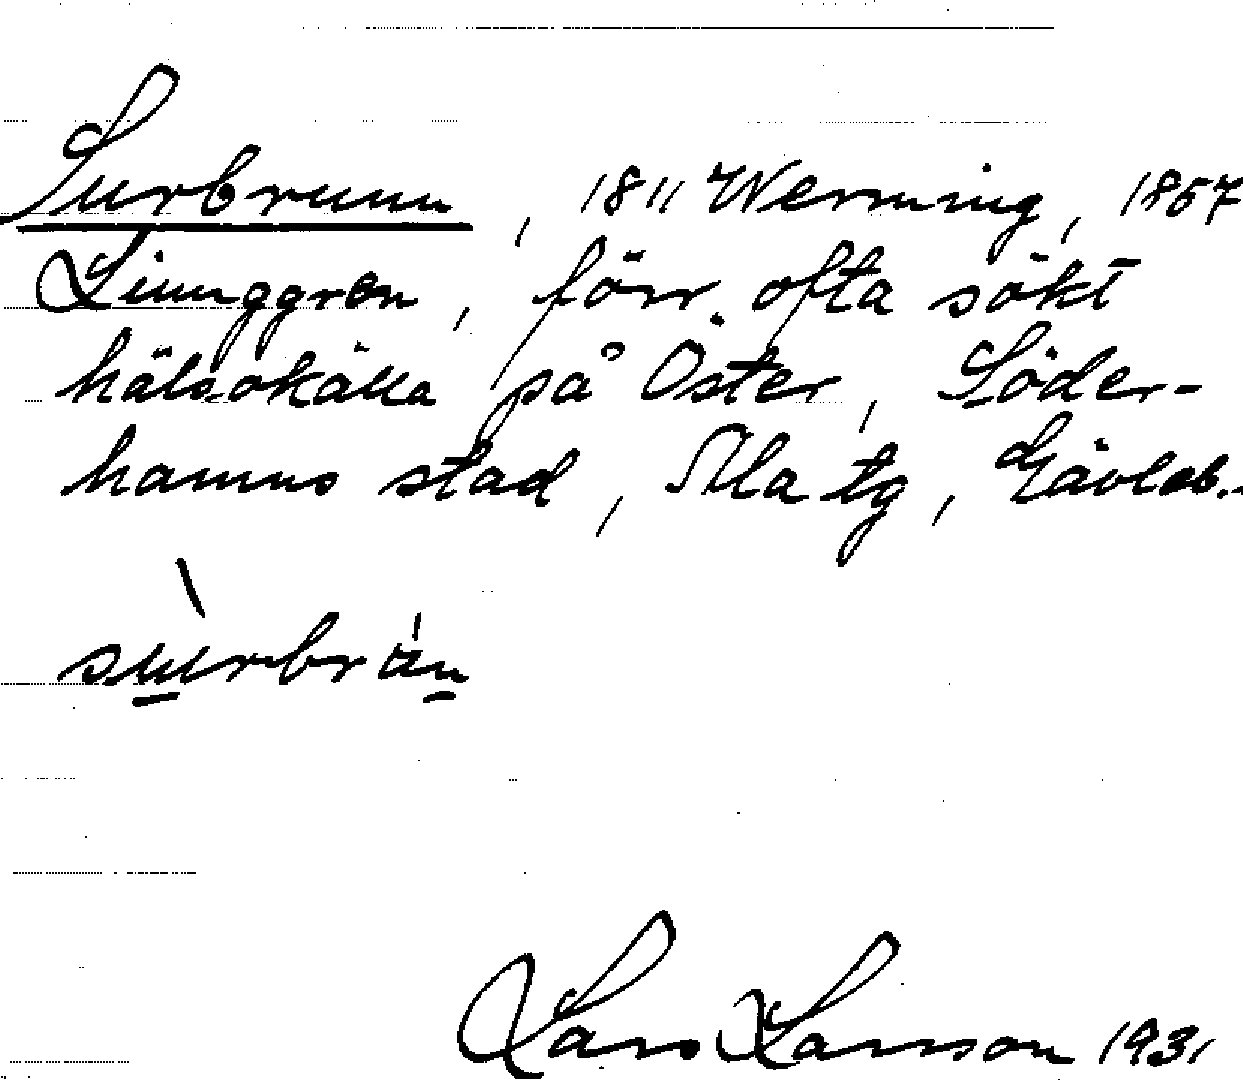 Surbrunn, 1811 Werming, 1867
Ljunggren, förr ofta sökt
hälsokälla på Öster, Söder-
hamns stad, Ala tg, Gävleb.-
sùrbrán
Lars Larsson 1931